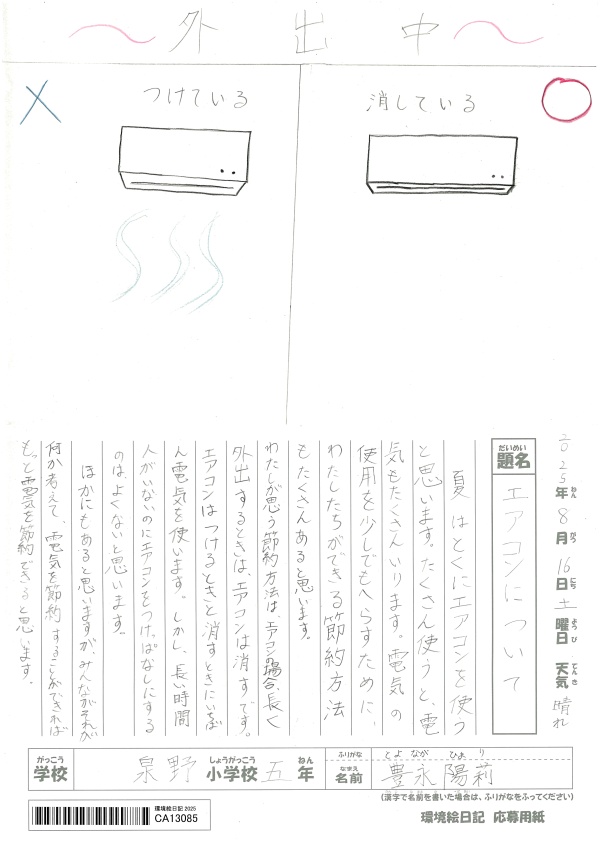 〜外出中〜
つけている
消している
2025年8月16日土曜日 天気 晴れ
ねん がつ にち ようび てんき
だいめい
題名 エアコンについて
夏はとくにエアコンを使う
と思います。たくさん使うと、電
気もたくさんいります。電気の
使用を少しでもへらすために、
わたしたちができる節約方法
もたくさんあると思います。
わたしが思う節約方法は、エアコンの場合、長く
外出するときは、エアコンは消すです。
エアコンはつけるときと消すときにいちば
ん電気を使います。しかし、長い時間
人がいないのにエアコンをつけっぱなしにする
のはよくないと思います。
ほかにもあると思いますが、みんながそれが
何か考えて、電気を節約することができれば
もっと電気を節約できると思います。
がっこう
学校 泉野 小学校 五年
しょうがっこう ねん
ふりがな とよ なが ひよ り
なまえ
名前 豊永陽莉
(漢字で名前を書いた場合は、ふりがなをふってください)
環境絵日記 2025
CA13085
環境絵日記 応募用紙